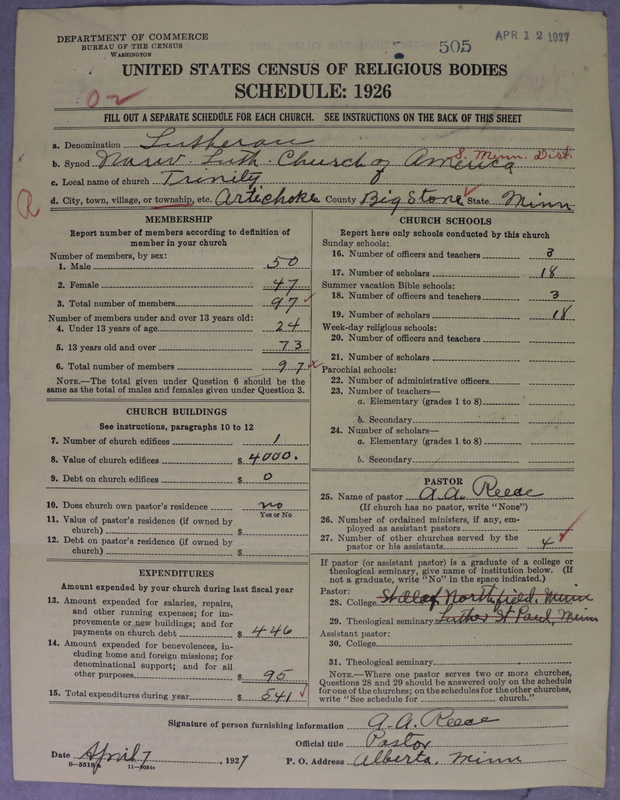 DEPARTMENT OF COMMERCE
BUREAU OF THE CENSUS
WASHINGTON
505
APR 12 1927
UNITED STATES CENSUS OF RELIGIOUS BODIES
SCHEDULE: 1926
FILL OUT A SEPARATE SCHEDULE FOR EACH CHURCH. SEE INSTRUCTIONS ON THE BACK OF THIS SHEET
a. Denomination Lutheran
b. Synod Norw. Luth. Church of America S. Minn. Dist.
c. Local name of church Trinity
d. City, town, village, or township, etc. Artichoke County Big Stone State Minn
R
MEMBERSHIP
Report number of members according to definition of
member in your church
Number of members, by sex:
1. Male 50
2. Female 47
3. Total number of members 97
Number of members under and over 13 years old:
4. Under 13 years of age 24
5. 13 years old and over 73
6. Total number of members 97
NOTE.—The total given under Question 6 should be the
same as the total of males and females given under Question 3.
CHURCH BUILDINGS
See instructions, paragraphs 10 to 12
7. Number of church edifices 1
8. Value of church edifices $ 4000.
9. Debt on church edifices $ 0
10. Does church own pastor's residence no
Yes or No
11. Value of pastor's residence (if owned by
church) $
12. Debt on pastor's residence (if owned by
church) $
EXPENDITURES
Amount expended by your church during last fiscal year
13. Amount expended for salaries, repairs,
and other running expenses; for im-
provements or new buildings; and for
payments on church debt $ 446
14. Amount expended for benevolences, in-
cluding home and foreign missions; for
denominational support; and for all
other purposes $ 95
15. Total expenditures during year $ 541
CHURCH SCHOOLS
Report here only schools conducted by this church
Sunday schools:
16. Number of officers and teachers 3
17. Number of scholars 18
Summer vacation Bible schools:
18. Number of officers and teachers 3
19. Number of scholars 18
Week-day religious schools:
20. Number of officers and teachers
21. Number of scholars
Parochial schools:
22. Number of administrative officers
23. Number of teachers—
a. Elementary (grades 1 to 8)
b. Secondary
24. Number of scholars—
a. Elementary (grades 1 to 8)
b. Secondary
PASTOR
25. Name of pastor A. A. Reede
(If church has no pastor, write "None")
26. Number of ordained ministers, if any, em-
ployed as assistant pastors
27. Number of other churches served by the
pastor or his assistants 4
If pastor (or assistant pastor) is a graduate of a college or
theological seminary, give name of institution below. (If
not a graduate, write "No" in the space indicated.)
Pastor:
28. College St Olaf Northfield, Minn
29. Theological seminary Luther St Paul, Minn
Assistant pastor:
30. College
31. Theological seminary
NOTE.—Where one pastor serves two or more churches,
Questions 28 and 29 should be answered only on the schedule
for one of the churches; on the schedules for the other churches,
write "See schedule for church."
Signature of person furnishing information A. A. Reede
Official title Pastor
Date April 7, 1927 P. O. Address Alberta, Minn